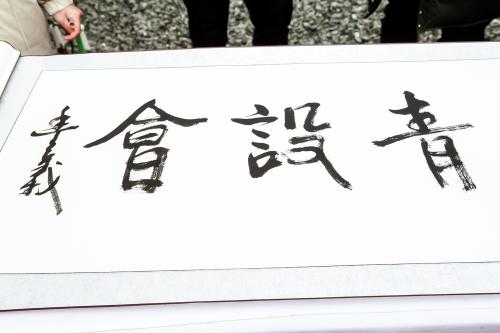 青設會